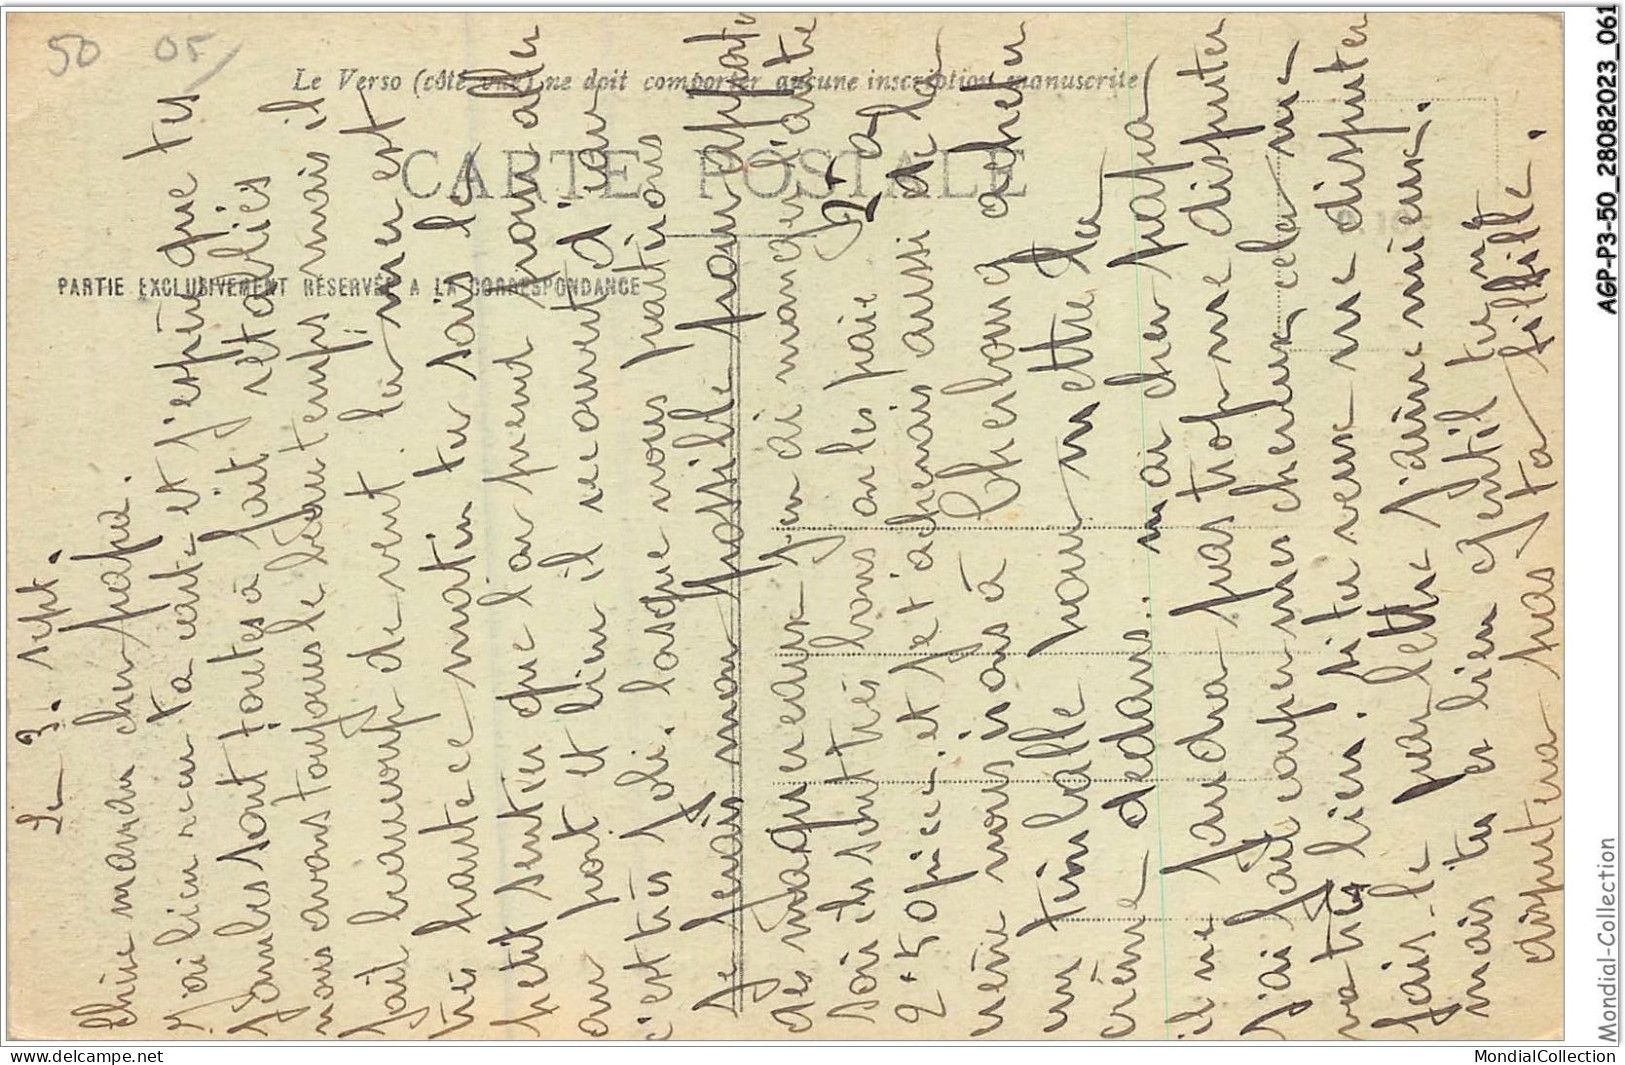 50 05
Le Verso (côté vue) ne doit comporter aucune inscription manuscrite
CARTE POSTALE
PARTIE EXCLUSIVEMENT RÉSERVÉE A LA CORRESPONDANCE
Le 3. sept.
Chère maman cher papa.
J'ai bien reçu ta carte et j'espère que tes
jambes sont toutes à fait rétablies
nous avons toujours le beau temps mais il
fait beaucoup de vent. la mer est
très haute ce matin tu sais le
petit sentier que l'on prend pour aller
au port et bien il recouvert d'eau
c'est très joli. lorsque nous partirons
je ferais mon possible pour apporter
des maquereaux j'en ai manger l'autre
soir ils sont très bons on les paie
2.50 pièce. et je t'acheterais aussi de la
crème nous irons à Cherbourg acheter
un timballe pour mettre la
crème dedans. mon cher papa
il ne faudra pas trop me disputer
j'ai fait couper mes cheveux cela me
va très bien. si tu veux me disputer
fais-le par lettre j'aime mieux.
mais tu es bien gentil tu ne
disputera pas ta fifille.
AGP-P3-50_28082023_061
Mondial-Collection
www.delcampe.net
MondialCollection